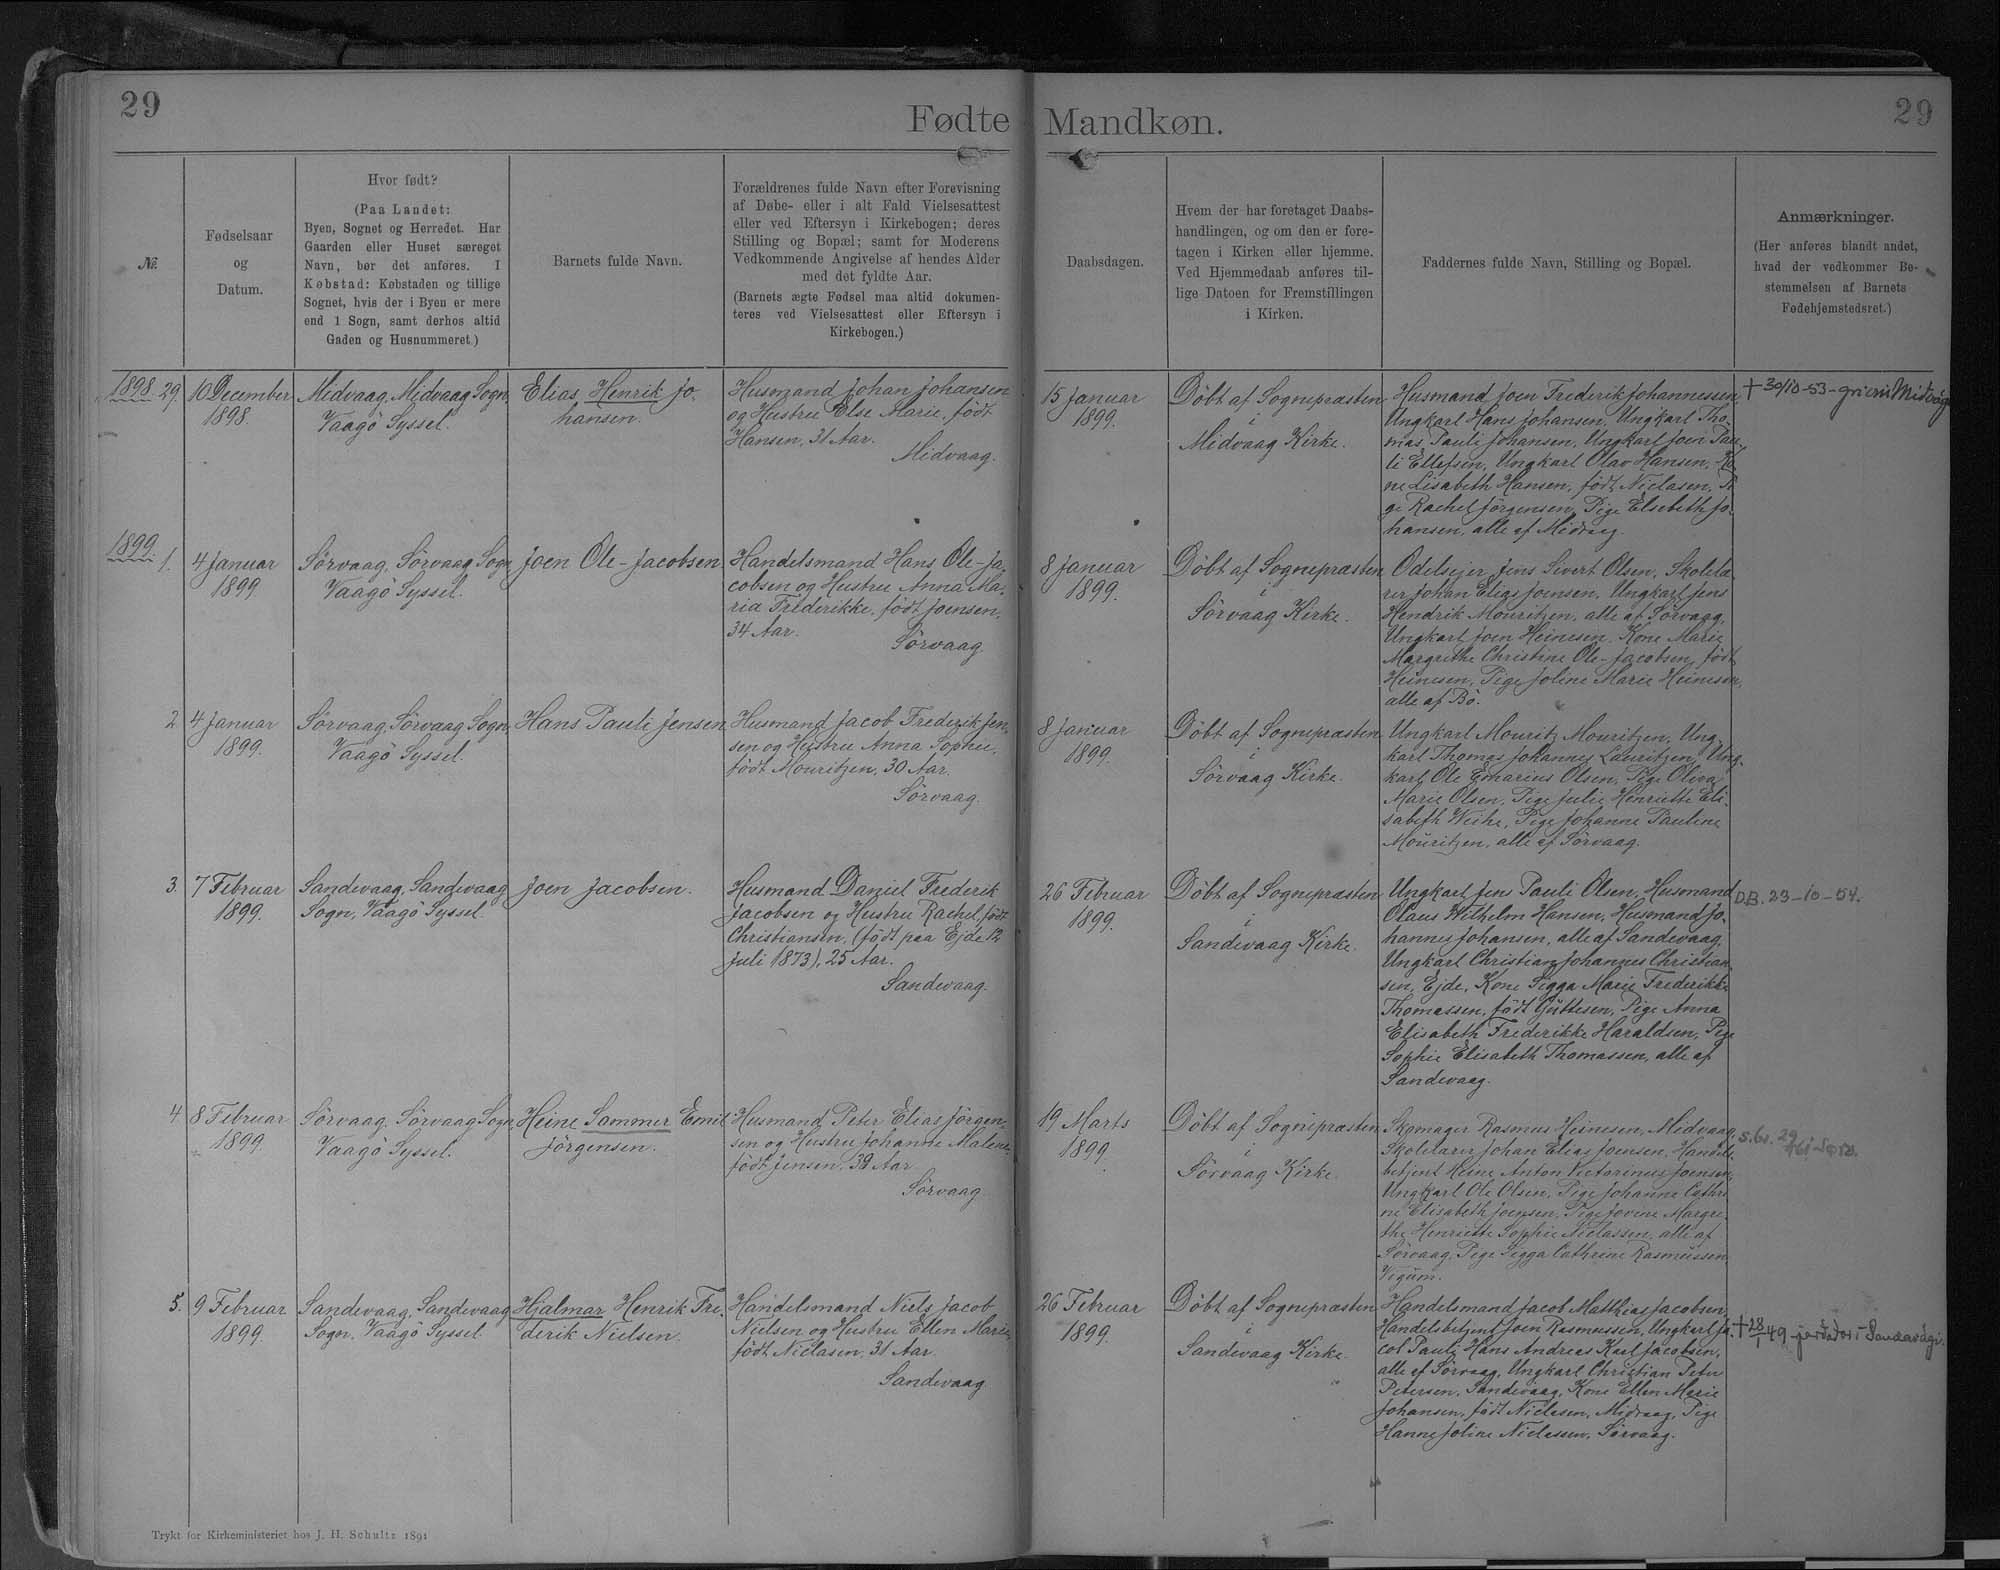 29
Fødte Mandkøn.
29
Nr.
Fødselsaar
og
Datum.
Hvor født?
(Paa Landet:
Byen, Sognet og Herredet. Har
Gaarden eller Huset særeget
Navn, bør det anføres. I
Købstad: Købstaden og tillige
Sognet, hvis der i Byen er mere
end 1 Sogn, samt derhos altid
Gaden og Husnummeret.)
Barnets fulde Navn.
Forældrenes fulde Navn efter Forevisning
af Døbe- eller i alt Fald Vielsesattest
eller ved Eftersyn i Kirkebogen; deres
Stilling og Bopæl; samt for Moderens
Vedkommende Angivelse af hendes Alder
med det fyldte Aar.
(Barnets ægte Fødsel maa altid dokumen-
teres ved Vielsesattest eller Eftersyn i
Kirkebogen.)
Daabsdagen.
Hvem der har foretaget Daabs-
handlingen, og om den er fore-
tagen i Kirken eller hjemme.
Ved Hjemmedaab anføres til-
lige Datoen for Fremstillingen
i Kirken.
Faddernes fulde Navn, Stilling og Bopæl.
Anmærkninger.
(Her anføres blandt andet,
hvad der vedkommer Be-
stemmelsen af Barnets
Fødehjemstedsret.)
1898. 29.
10 December
1898.
Midvaag, Midvaag Sogn,
Vaagö Syssel.
Elias Henrik Jo-
hansen.
Husmand Johan Johansen
og Hustru Else Marie, født
Hansen, 31 Aar.
Midvaag.
15 Januar
1899.
Döbt af Sognepræsten
i
Midvaag Kirke.
Husmand Joen Frederik Johannessen,
Ungkarl Hans Johansen, Ungkarl Tho-
mas Pauli Johansen, Ungkarl Joen Pau-
li Ellefsen, Ungkarl Olav Hansen, Ko-
ne Lisabeth Hansen, født Niclasen, Pi-
ge Rachel Jörgensen, Pige Elsebeth Jo-
hansen, alle af Midvaag.
† 30/10-53- Midvág
1899. 1.
4 Januar
1899.
Sörvaag, Sörvaag Sogn,
Vaagö Syssel.
Joen Ole-Jacobsen
Handelsmand Hans Ole-Ja-
cobsen og Hustru Anna Ma-
ria Frederikke, født Joensen,
34 Aar.
Sörvaag
8 Januar
1899.
Döbt af Sognepræsten
i
Sörvaag Kirke.
Odelsejer Jens Sivert Olsen, Skolelæ-
rer Johan Elias Joensen, Ungkarl Jens
Hendrik Mouritzen, alle af Sörvaag,
Ungkarl Joen Heinesen, Kone Marie
Margrethe Christine Ole-Jacobsen, født
Heinesen, Pige Joline Marie Heinesen,
alle af Bö.
2
4 Januar
1899.
Sörvaag, Sörvaag Sogn,
Vaagö Syssel.
Hans Pauli Jensen
Husmand Jacob Frederik Jen-
sen og Hustru Anna Sophie,
født Mouritzen, 30 Aar.
Sörvaag.
8 Januar
1899.
Döbt af Sognepræsten
i
Sörvaag Kirke.
Ungkarl Mouritz Mouritzen, Ung-
karl Thomas Johannes Lauritzen, Ung-
karl Ole Olsen, Pige Oliva
Marie Olsen, Pige Julie Henriette Eli-
sabeth Weihe, Pige Johanne Pauline
Mouritzen, alle af Sörvaag.
3.
7 Februar
1899.
Sandevaag, Sandevaag
Sogn, Vaagö Syssel.
Joen Jacobsen.
Husmand Daniel Frederik
Jacobsen og Hustru Rachel, født
Christiansen, (født paa Ejde 12
Juli 1873), 25 Aar.
Sandevaag.
26 Februar
1899.
Döbt af Sognepræsten
i
Sandevaag Kirke.
Ungkarl Jens Pauli Olsen, Husmand
Olaus Wilhelm Hansen, Husmand Jo-
hannes Johansen, alle af Sandevaag,
Ungkarl Christian Johannes Christian-
sen, Ejde, Kone Sigga Marie Frederikke
Thomassen, født Guttesen, Pige Anna
Elisabeth Frederikke Haraldsen, Pige
Sophie Elisabeth Thomassen, alle af
Sandevaag.
D.B. 23-10-54.
4
8 Februar
1899.
Sörvaag, Sörvaag Sogn,
Vaagö Syssel.
Heine Sammer Emil
Jörgensen.
Husmand Peter Elias Jörgen-
sen og Hustru Johanne Malene,
født Jensen, 39 Aar
Sörvaag
19 Marts
1899.
Döbt af Sognepræsten
i
Sörvaag Kirke.
Skomager Rasmus Heinesen, Midvaag,
Skolelærer Johan Elias Joensen, Handels-
betjent Heine Anton Victorinus Joensen,
Ungkarl Ole Olsen, Pige Johanne Cathri-
ne Elisabeth Joensen, Pige Jovine Margre-
the Henriette Sophie Niclassen, alle af
Sörvaag, Pige Sigga Cathrine Rasmussen,
Vigum.
5.
9 Februar
1899.
Sandevaag, Sandevaag
Sogn, Vaagö Syssel
Hjalmar Henrik Fre-
derik Nielsen.
Handelsmand Niels Jacob
Nielsen og Hustru Ellen Marie,
født Niclasen, 31 Aar.
Sandevaag
26 Februar
1899.
Döbt af Sognepræsten
i
Sandevaag Kirke.
Handelsmand Jacob Matthias Jacobsen,
Handelsbetjent Joen Rasmussen, Ungkarl Ja-
cob Pauli Hans Andreas Karl Jacobsen,
alle af Sörvaag, Ungkarl Christian Peter
Petersen, Sandevaag, Kone Ellen Marie
Johansen, født Niclasen, Midvaag, Pige
Hanne Joline Niclassen, Sörvaag.
Trykt for Kirkeministeriet hos J. H. Schultz 1891